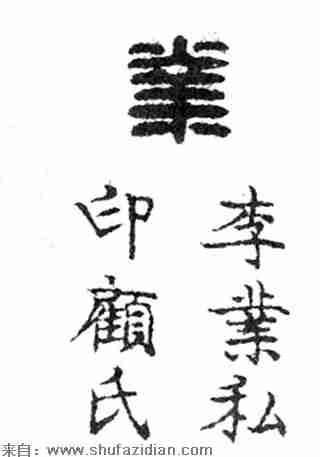 業
李業私
印顧氏
来自：www.shufazidian.com